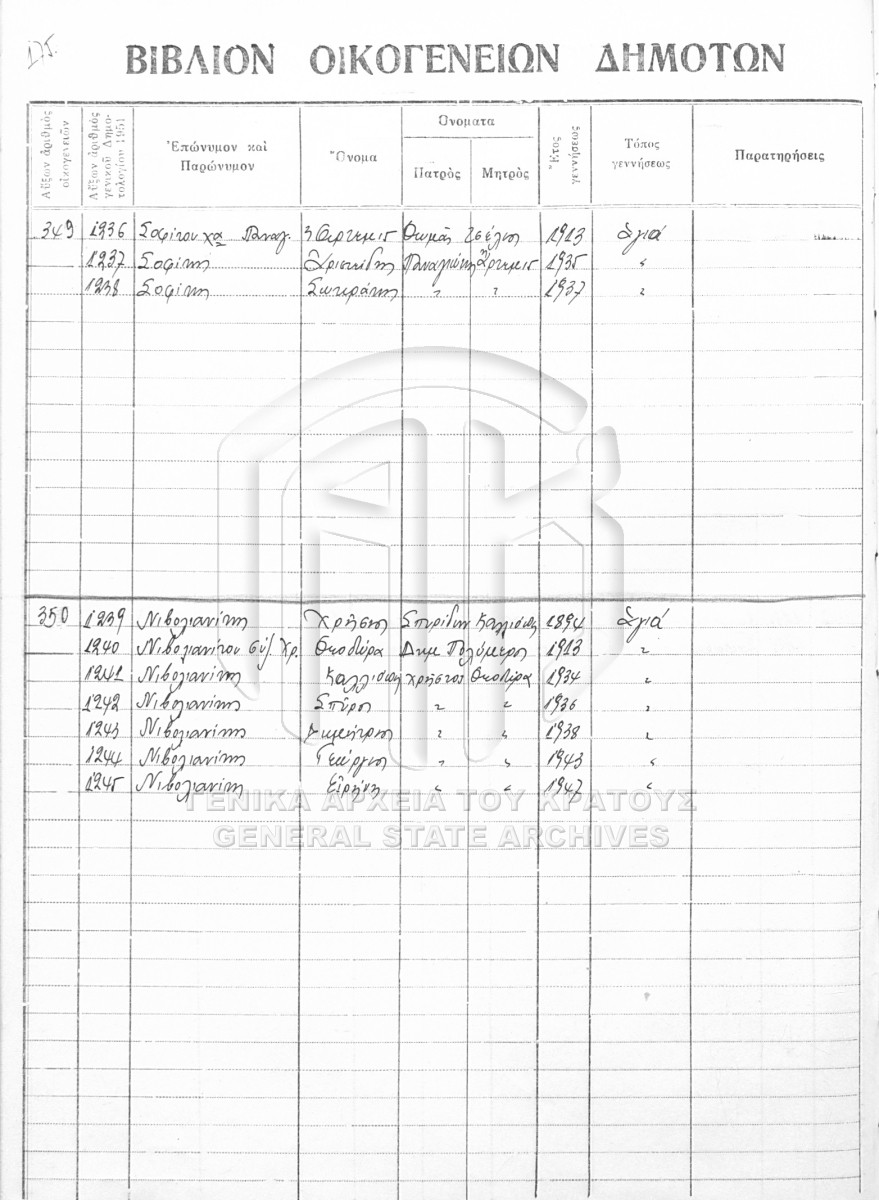 175.
ΒΙΒΛΙΟΝ ΟΙΚΟΓΕΝΕΙΩΝ ΔΗΜΟΤΩΝ
Αὔξων ἀριθμὸς οἰκογενειῶν
Αὔξων ἀριθμὸς γενικοῦ Δημοτολογίου 1951
Ἐπώνυμον καὶ Παρώνυμον
Ὄνομα
Ὀνοματα
Πατρὸς
Μητρὸς
Ἔτος γεννήσεως
Τόπος γεννήσεως
Παρατηρήσεις
349 1936 Σοφίτου χα Παναγ. Ἄρτεμις Θωμᾶς 1913 Ἁγιά
1237 Σοφίτης Ἀριστείδης Παναγιώτης Ἄρτεμις 1935 "
1238 Σοφίτης Σωκράτης " " 1937 "
350 1239 Νιβολιανίτης Χρῆστος Σπυρίδων Καλλιόπη 1894 Ἁγιά
1240 Νιβολιανίτου συζ Χρ. Θεοδώρα Δημ Πολυμέρη 1913 "
1241 Νιβολιανίτη Καλλιόπη Χρῆστος Θεοδώρα 1934 "
1242 Νιβολιανίτης Σπῦρος " " 1936 "
1243 Νιβολιανίτης Δημήτριος " " 1938 "
1244 Νιβολιανίτης Γεώργιος " " 1943 "
1245 Νιβολιανίτη Εἰρήνη " " 1947 "
ΓΕΝΙΚΑ ΑΡΧΕΙΑ ΤΟΥ ΚΡΑΤΟΥΣ
GENERAL STATE ARCHIVES